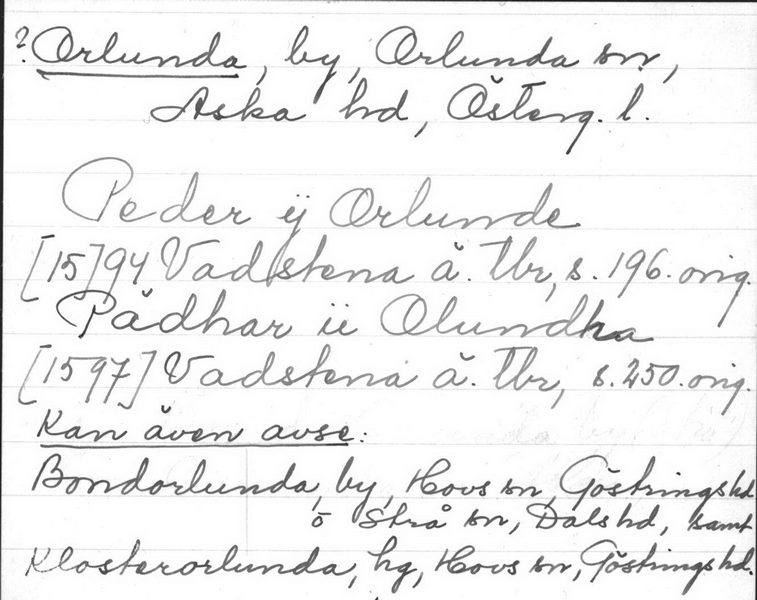 ? Orlunda, by, Orlunda sn,
Aska hd, Österg. l.
Peder ij Orlunde
[15]94 Vadstena ä. Tbr, s. 196. orig.
Pädhar ii Olundha
[1597] Vadstena ä. Tbr, s. 250. orig.
Kan även avse:
Bondorlunda, by, Hovs sn, Göstrings hd
o Strå sn, Dals hd, samt
Klosterorlunda, hg, Hovs sn, Göstrings hd.